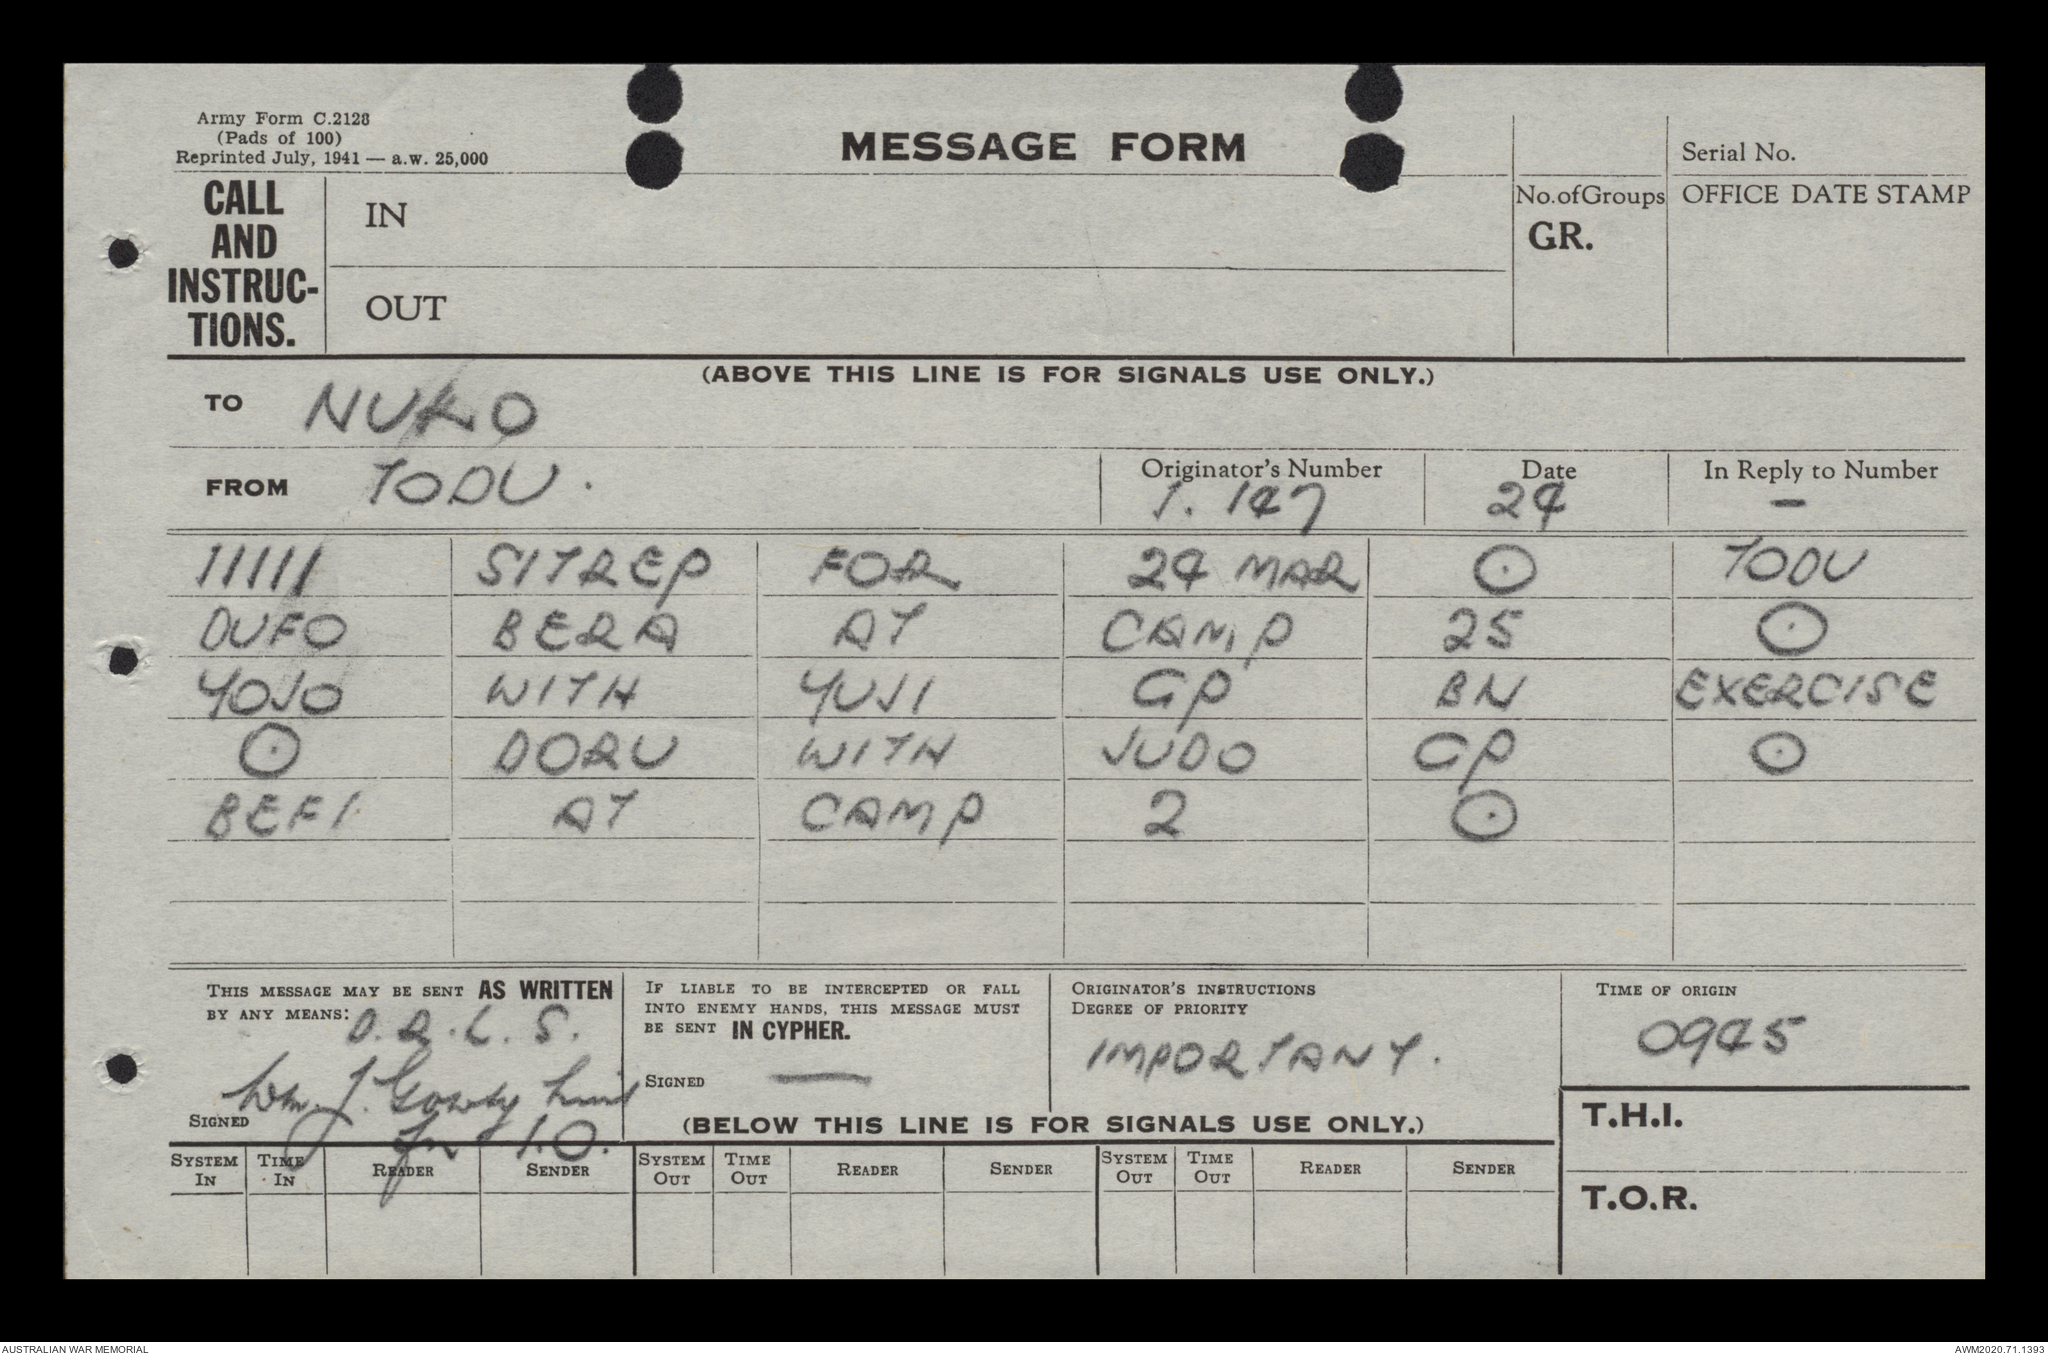 Army Form C.2128
(Pads of 100)
Reprinted July, 1941 — a.w. 25,000
MESSAGE FORM
Serial No.
CALL AND INSTRUC-TIONS.
IN
OUT
No. of Groups
GR.
OFFICE DATE STAMP
(ABOVE THIS LINE IS FOR SIGNALS USE ONLY.)
TO NUKO
FROM TODU.
Originator's Number I. 147
Date 24
In Reply to Number —
11111 SITREP FOR 24 MAR ⊙ TODU
DUFO BERA AT CAMP 25 ⊙
YOJO WITH YUJI GP BN EXERCISE
⊙ DORU WITH JUDO GP ⊙
BEFI AT CAMP 2 ⊙
THIS MESSAGE MAY BE SENT AS WRITTEN BY ANY MEANS: D.R.L.S.
SIGNED Wm. J. Lieut
for I.O.
IF LIABLE TO BE INTERCEPTED OR FALL INTO ENEMY HANDS, THIS MESSAGE MUST BE SENT IN CYPHER.
SIGNED —
ORIGINATOR'S INSTRUCTIONS
DEGREE OF PRIORITY
IMPORTANT.
TIME OF ORIGIN
0945
T.H.I.
T.O.R.
(BELOW THIS LINE IS FOR SIGNALS USE ONLY.)
SYSTEM IN TIME IN READER SENDER SYSTEM OUT TIME OUT READER SENDER SYSTEM OUT TIME OUT READER SENDER
AUSTRALIAN WAR MEMORIAL
AWM2020.71.1393